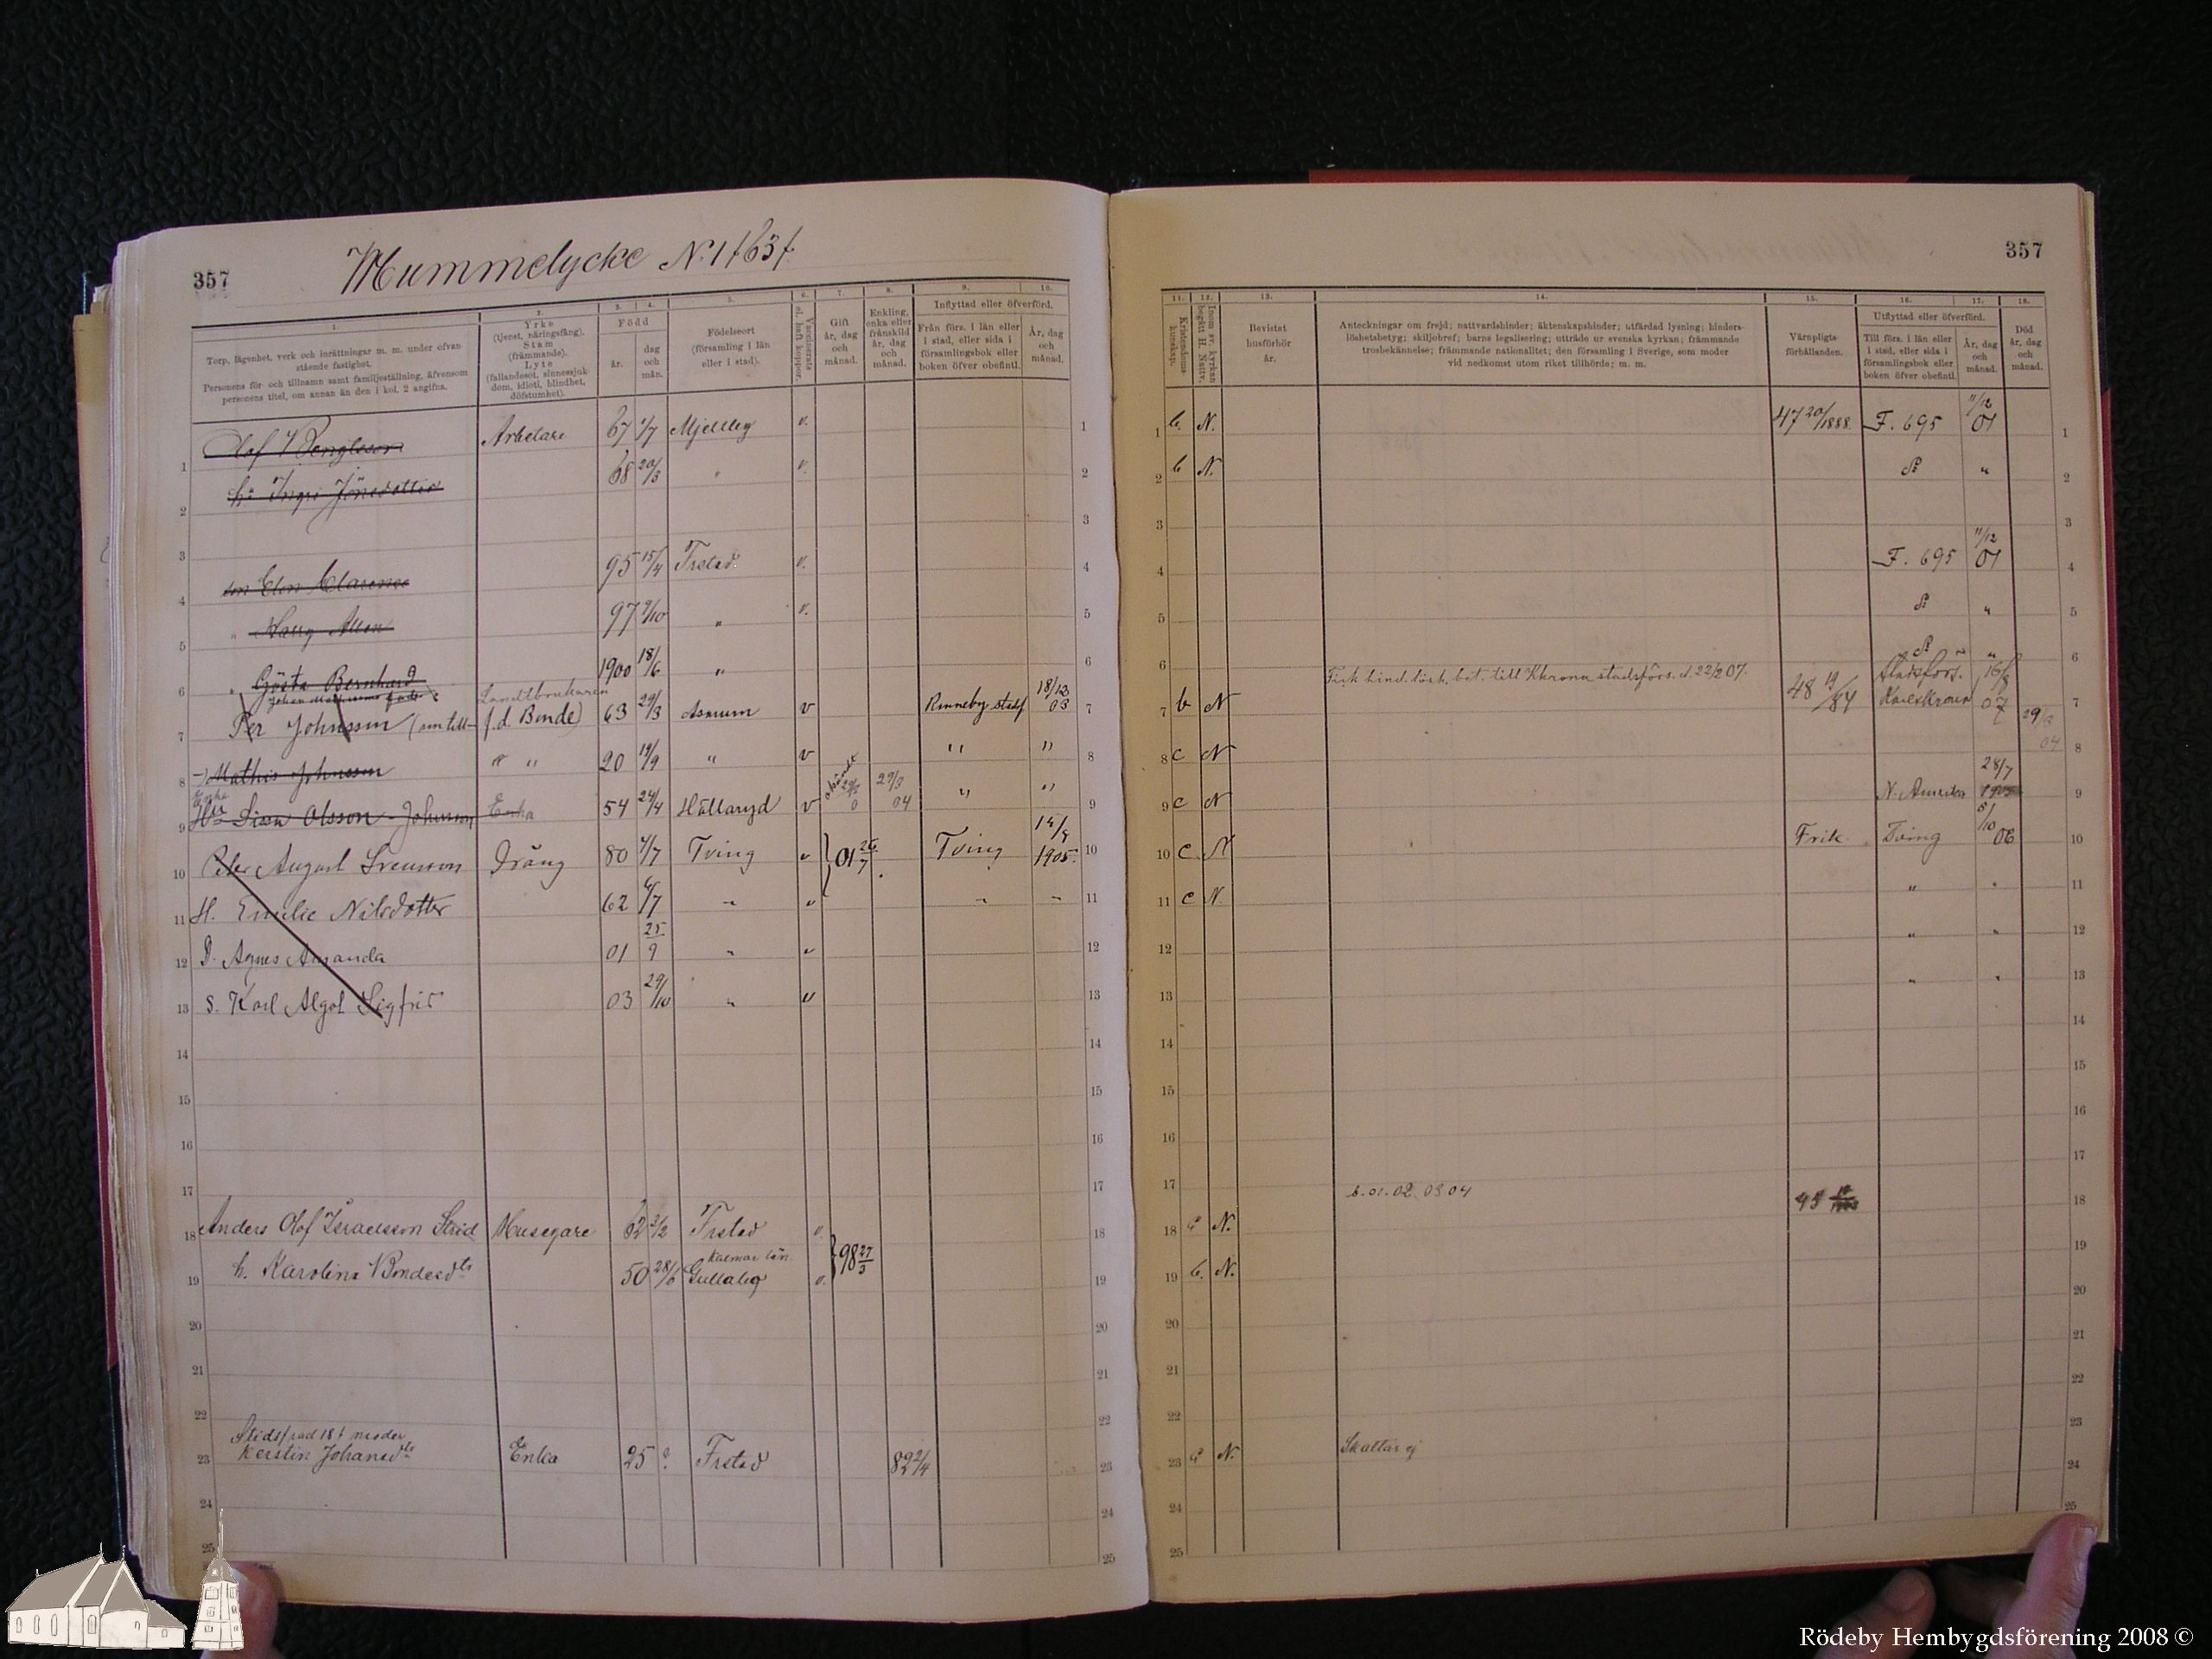 357
Mummelycke N:1 †63†.
1.
2.
3.
4.
5.
6.
7.
8.
9.
10.
Torp, lägenhet, verk och inrättningar m. m. under ofvan-
stående fastighet.
Personens för- och tillnamn samt familjeställning, äfvensom
personens titel, om annan än den i kol. 2 angifna.
Yrke
(tjenst, näringsfång).
Stam
(främmande).
Lyte
(fallandesot, sinnessjuk-
dom, idioti, blindhet,
döfstumhet).
Född
år.
dag
och
mån.
Födelseort
(församling i län
eller i stad).
Vaccinerats
el. haft koppor.
Gift
år, dag
och
månad.
Enkling,
enka eller
frånskild
år, dag
och
månad.
Inflyttad eller öfverförd.
Från förs. i län eller
i stad, eller sida i
församlingsbok eller
boken öfver obefintl.
År, dag
och
månad.
1 Olof Bengtsson Arbetare 67 1/7 Mjelleby v. 1
2 h: Ingri Jönsdotter 68 20/3 " v. 2
3 3
4 son Elon Clarence 95 15/4 Frstad v. 4
5 " Harry Allon 97 9/10 " v. 5
6 " Gösta Bernhard 1900 18/6 " 6
Landtbrukaren
7 Per Johnsson (son till f.d. Bonde) 63 29/3 Asarum v Ronneby stadsf 18/12 03 7
8 Mathis Johnsson " " 20 19/9 " v " " 8
9 Olsson-Johnsson Enka 54 24/4 Hällaryd v 29/3 04 " " 9
10 Peter August Svensson Dräng 80 4/7 Tving v 01 26/7 Tving 1905. 10
11 H. Emilie Nilsdotter 62 6/7 " v " " 11
12 D. Agnes Amanda 01 25/9 " v 12
13 S. Karl Algot Sigfrid 03 29/10 " v 13
14 14
15 15
16 16
17 17
18 Anders Olof Israelsson Strid Husegare 62 2/2 Frstad v. 98 27/3 18
Kalmar län.
19 h. Karolina Bondesdr 50 28/6 Gullabo v. 19
20 20
21 21
22 22
moder
23 Kerstin Johansdr Enka 25 ?. Frstad 89 2/4 23
24 24
25 25
357
11.
12.
13.
14.
15.
16.
17.
18.
Kristendoms
kunskap.
Inom sv. kyrkan
begått H. Nattv.
Bevistat
husförhör
år.
Anteckningar om frejd; nattvardshinder; äktenskapshinder; utfärdad lysning; hinders-
löshetsbetyg; skiljobref; barns legalisering; utträde ur svenska kyrkan; främmande
trosbekännelse; främmande nationalitet; den församling i Sverige, som moder
vid nedkomst utom riket tillhörde; m. m.
Värnpligts-
förhållanden.
Utflyttad eller öfverförd.
Till förs. i län eller
i stad, eller sida i
församlingsbok eller
boken öfver obefintl.
År, dag
och
månad.
Död
år, dag
och
månad.
1 b. N. 47 20/1888. F. 695 11/12 01 1
2 b N. " 2
3 3
4 F. 695 11/12 01 4
5 " 5
6 " 6
7 b N hind. lösh. bet. till Kkrona stadsförs. d. 22/2 07. 48 19/84 Stadsförs. Karlskrona 16/8 07 7
8 c N 29/3 04 8
9 c N N. Amerika 28/7 9
10 c N Frik. Tving 5/10 06 10
11 c N. " " 11
12 " " 12
13 " " 13
14 14
15 15
16 16
17 17
18 N. b. 01. 02. 03 04 18
19 b. N. 19
20 20
21 21
22 22
23 N. Skattar ej 23
24 24
25 25
Rödeby Hembygdsförening 2008 ©